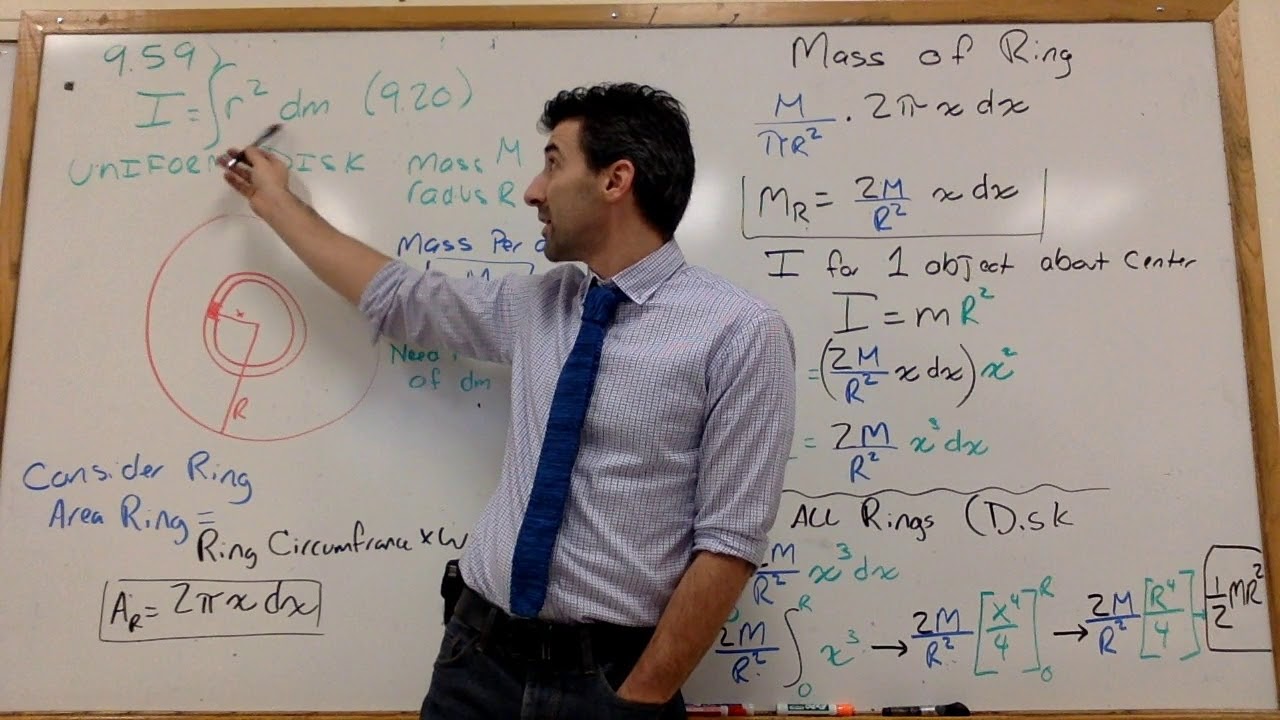 9.59
I = ∫ r² dm (9.20)
UNIFORM DISK
Mass M
radius R
Mass Per
M
Need
of dm
x
R
Consider Ring
Area Ring =
Ring Circumfrance x W
A_R = 2πx dx
Mass of Ring
M/πR² · 2πx dx
M_R = 2M/R² x dx
I for 1 object about Center
I = mR²
= (2M/R² x dx) x²
= 2M/R² x³ dx
ALL Rings (Disk
2M/R² x³ dx
2M/R² ∫₀ᴿ x³ → 2M/R² [x⁴/4]₀ᴿ → 2M/R² [R⁴/4] 1/2 MR²